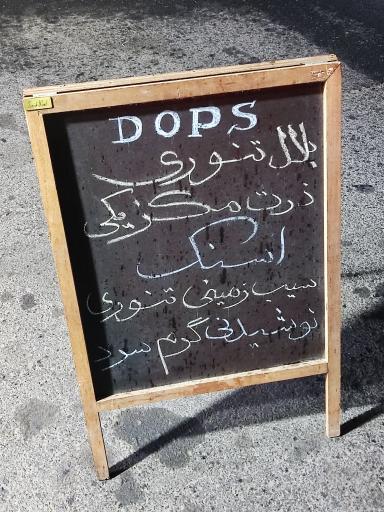 DOPS
بلال تنوری
ذرت مکزیکی
اسنک
سیب زمینی تنوری
نوشیدنی گرم سرد